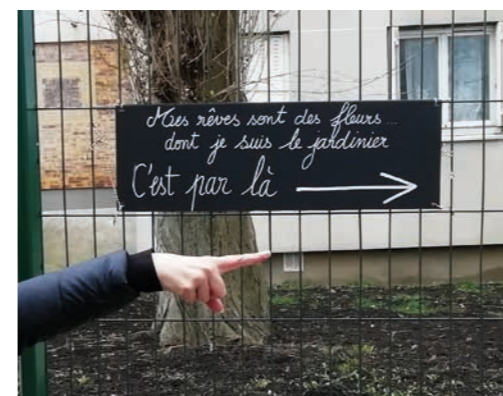 Mes rêves sont des fleurs...
dont je suis le jardinier
C'est par là